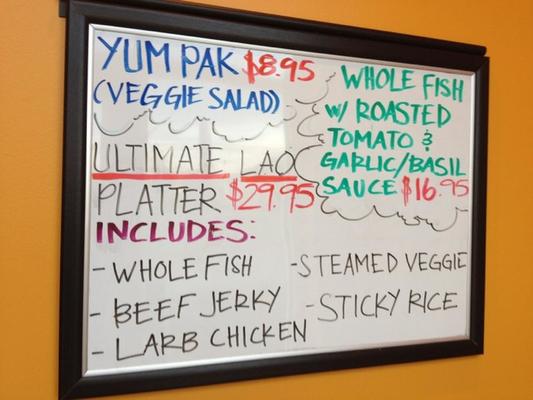 YUM PAK $8.95
(VEGGIE SALAD)
WHOLE FISH
W/ ROASTED
TOMATO &
GARLIC/BASIL
SAUCE $16.95
ULTIMATE LAO
PLATTER $29.95
INCLUDES:
- WHOLE FISH
- BEEF JERKY
- LARB CHICKEN
- STEAMED VEGGIE
- STICKY RICE